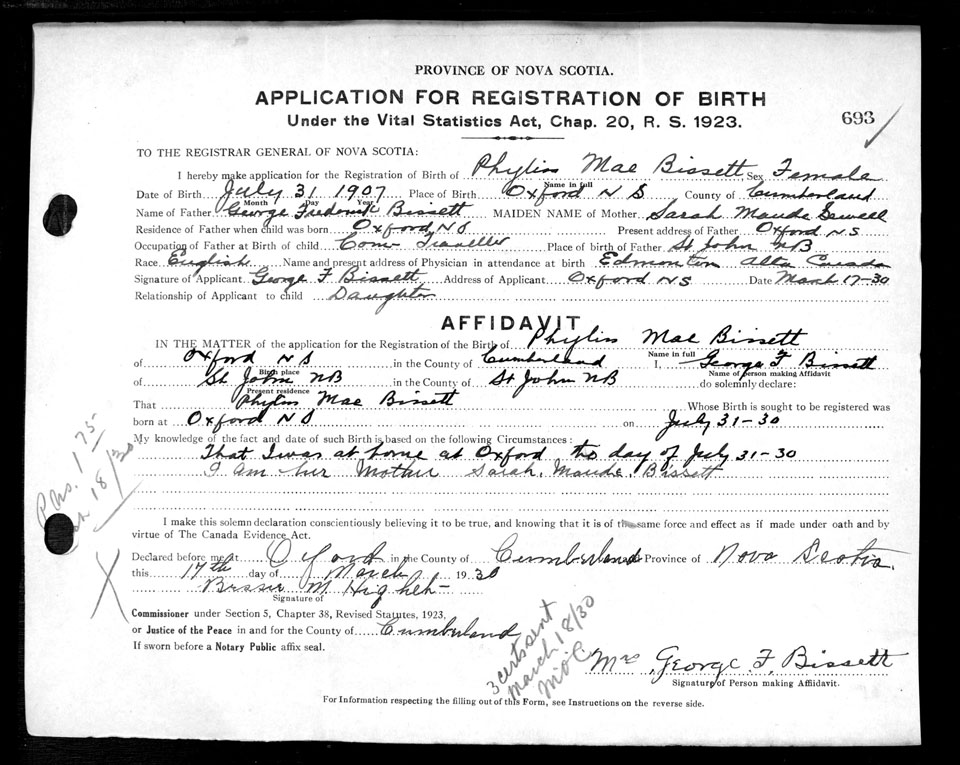 PROVINCE OF NOVA SCOTIA.
APPLICATION FOR REGISTRATION OF BIRTH
Under the Vital Statistics Act, Chap. 20, R. S. 1923.
693
TO THE REGISTRAR GENERAL OF NOVA SCOTIA:
I hereby make application for the Registration of Birth of Phyliss Mae Bissett, Sex Female
Name in full
Date of Birth July 31 1907 Place of Birth Oxford N S County of Cumberland
Month Day Year
Name of Father George Frederick Bissett MAIDEN NAME of Mother Sarah Maude Sewell
Residence of Father when child was born Oxford NS Present address of Father Oxford N.S
Occupation of Father at Birth of child Com Traveller Place of birth of Father St John NB
Race English Name and present address of Physician in attendance at birth Edmonton Alta Canada
Signature of Applicant George F Bissett Address of Applicant Oxford NS Date March 17-30
Relationship of Applicant to child Daughter
AFFIDAVIT
IN THE MATTER of the application for the Registration of the Birth of Phyliss Mae Bissett
Name in full
of Oxford NS in the County of Cumberland I, George F Bissett
Birth place Name of person making Affidavit
of St John NB in the County of St John NB do solemnly declare:
Present residence
That Phyliss Mae Bissett Whose Birth is sought to be registered was
born at Oxford N S on July 31-30
My knowledge of the fact and date of such Birth is based on the following Circumstances:
That I was at home at Oxford the day of July 31-30
I am her Mother Sarah Maude Bissett
I make this solemn declaration conscientiously believing it to be true, and knowing that it is of the same force and effect as if made under oath and by
virtue of The Canada Evidence Act.
Declared before me at Oxford in the County of Cumberland Province of Nova Scotia.
this 17th day of March 1930
Bessie M
Signature of
Commissioner under Section 5, Chapter 38, Revised Statutes, 1923,
or Justice of the Peace in and for the County of Cumberland
If sworn before a Notary Public affix seal.
Mrs George F, Bissett
Signature of Person making Affidavit.
For Information respecting the filling out of this Form, see Instructions on the reverse side.
1.75
18/30
3 certs sent
March 18/30